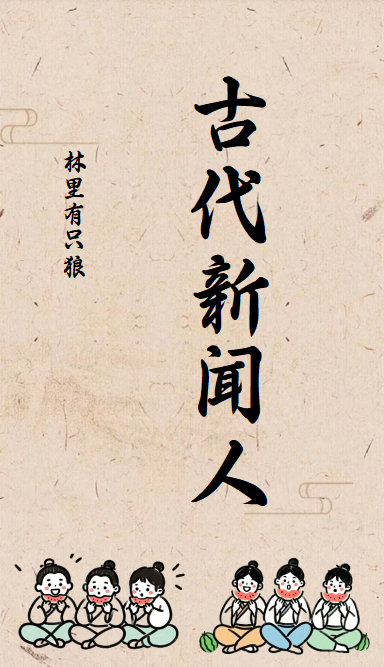 古代新闻人
林里有只狼